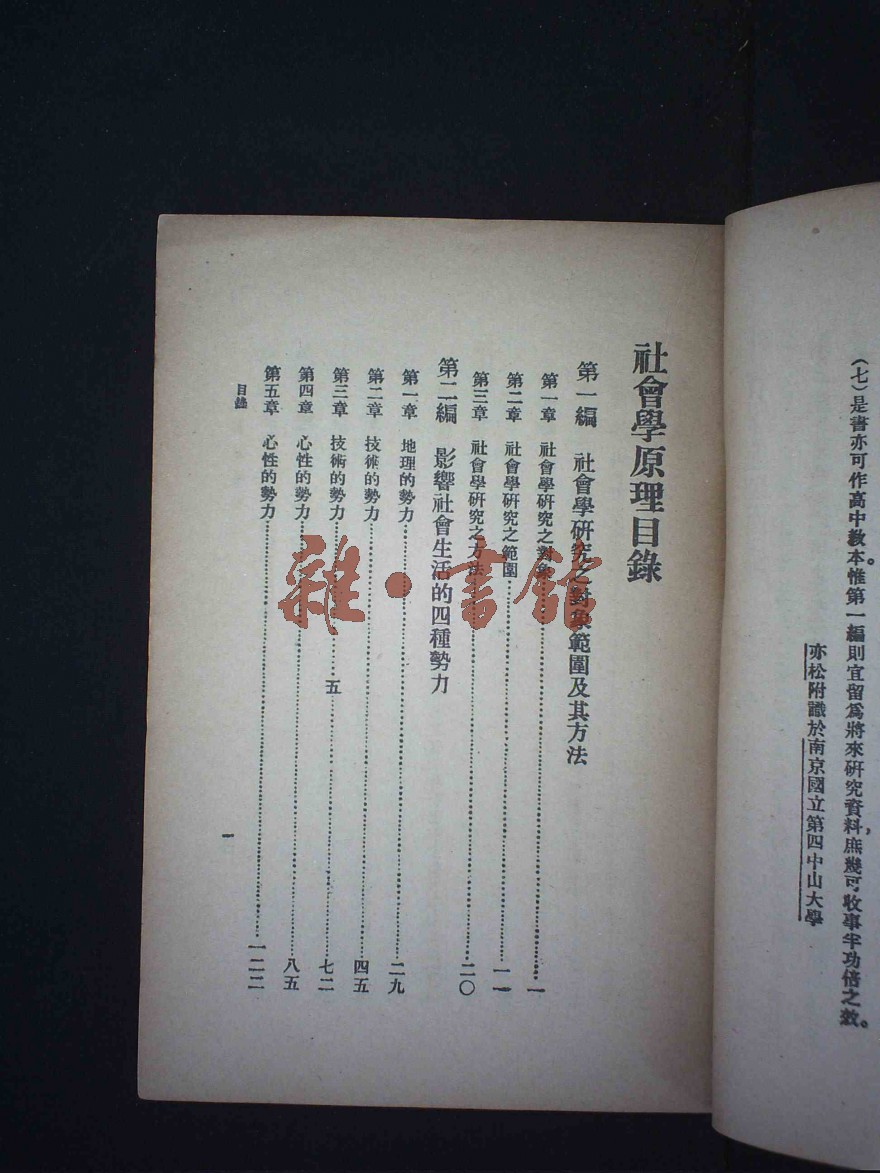 (七)是書亦可作高中教本。惟第一編則宜留爲將來研究資料,庶幾可收事半功倍之效。
亦松附識於南京國立第四中山大學
社會學原理目錄
第一編 社會學研究之對象範圍及其方法
第一章 社會學研究之對象……一
第二章 社會學研究之範圍……一一
第三章 社會學研究之方法……二〇
第二編 影響社會生活的四種勢力
第一章 地理的勢力……二九
第二章 技術的勢力……四五
第三章 技術的勢力……五……七二
第四章 心性的勢力……八五
第五章 心性的勢力……一二二
目錄
一
雜·書館